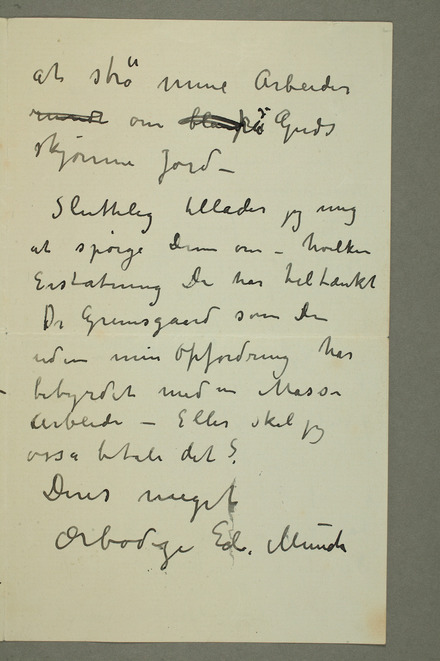 at strö mine Arbeider
rundt om blandt på Guds
skjønne Jord –
Sluttelig tillader jeg mig
at spørge Dem om – hvilken
Erstatning De har tiltænkt
Dr Grimsgaard som De
uden min Opfordring har
bebyrdet med en Masse
Arbeide – Eller skal jeg
osså betale det?
Deres meget
ærbødige Ed. Munch